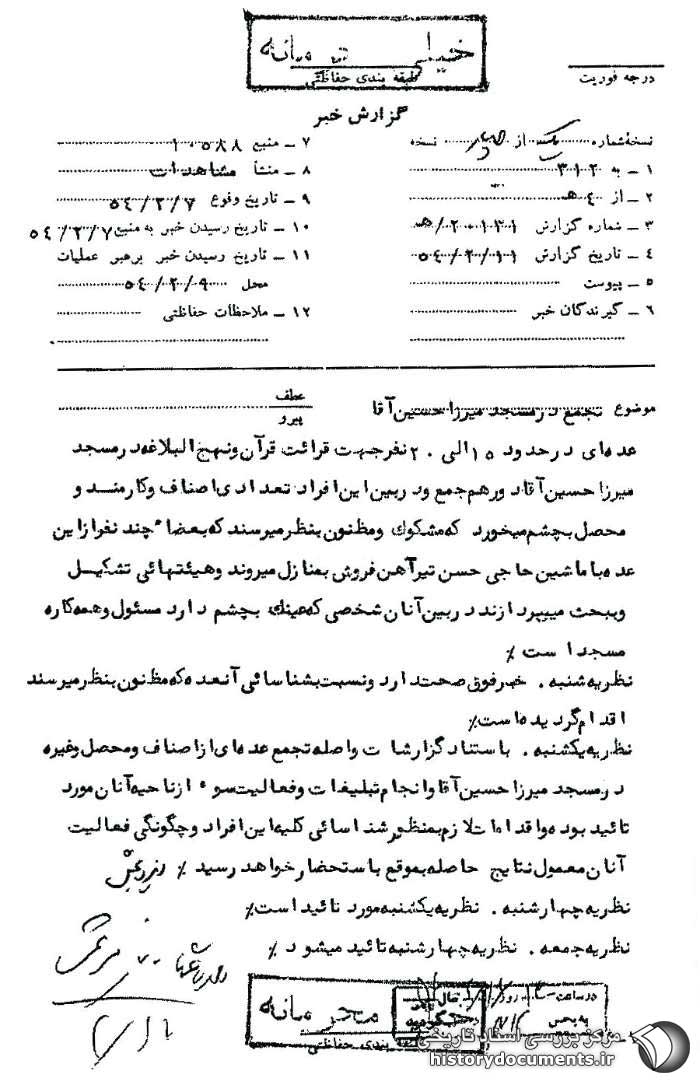 خیلی محرمانه
طبقه بندی حفاظتی
درجه فوریت
گزارش خبر
نسخه شماره یک از نسخه
۱ - به ۳۱۲
۲ - از ۴ هـ
۳ - شماره گزارش ۲۰۱۳۱/هـ
۴ - تاریخ گزارش ۵۴/۲/۱۱
۵ - پیوست
۶ - گیرندگان خبر
۷ - منبع ۱۰۵۸۸
۸ - منشأ مشاهدات
۹ - تاریخ وقوع ۵۴/۲/۷
۱۰ - تاریخ رسیدن خبر به منبع ۵۴/۲/۷
۱۱ - تاریخ رسیدن خبر برهبر عملیات
محل ۵۴/۲/۹
۱۲ - ملاحظات حفاظتی
موضوع تجمع در مسجد میرزا حسین آقا
عطف
پیرو
عده ای در حدود ۱۵ الی ۲۰ نفر جهت قرائت قرآن و نهج البلاغه در مسجد
میرزا حسین آقا دور هم جمع و در بین این افراد تعدادی اصناف و کارمند و
محصل بچشم میخورد که مشکوک و مظنون بنظر میرسند که بعضاً چند نفر از این
عده با ماشین حاجی حسن تیرآهن فروش بمنازل میروند و هیئتهائی تشکیل
و ببحث میپردازند در بین آنان شخصی که عینک بچشم دارد مسئول و همه کاره
مسجد است ٪
نظریه شنبه . خبر فوق صحت دارد و نسبت بشناسائی آنعده که مظنون بنظر میرسند
اقدام گردیده است٪
نظریه یکشنبه . باستناد گزارشات واصله تجمع عده ای از اصناف و محصل و غیره
در مسجد میرزا حسین آقا و انجام تبلیغات و فعالیت سوء از ناحیه آنان مورد
تائید بوده و اقدامات لازم بمنظور شناسائی کلیه این افراد و چگونگی فعالیت
آنان معمول نتایج حاصله بموقع باستحضار خواهد رسید ٪
نظریه چهارشنبه . نظریه یکشنبه مورد تائید است٪
نظریه جمعه . نظریه چهارشنبه تائید میشود ٪
محرمانه
طبقه بندی حفاظتی
در ساعت روز
به بخش
مرکز بررسی اسناد تاریخی
historydocuments.ir